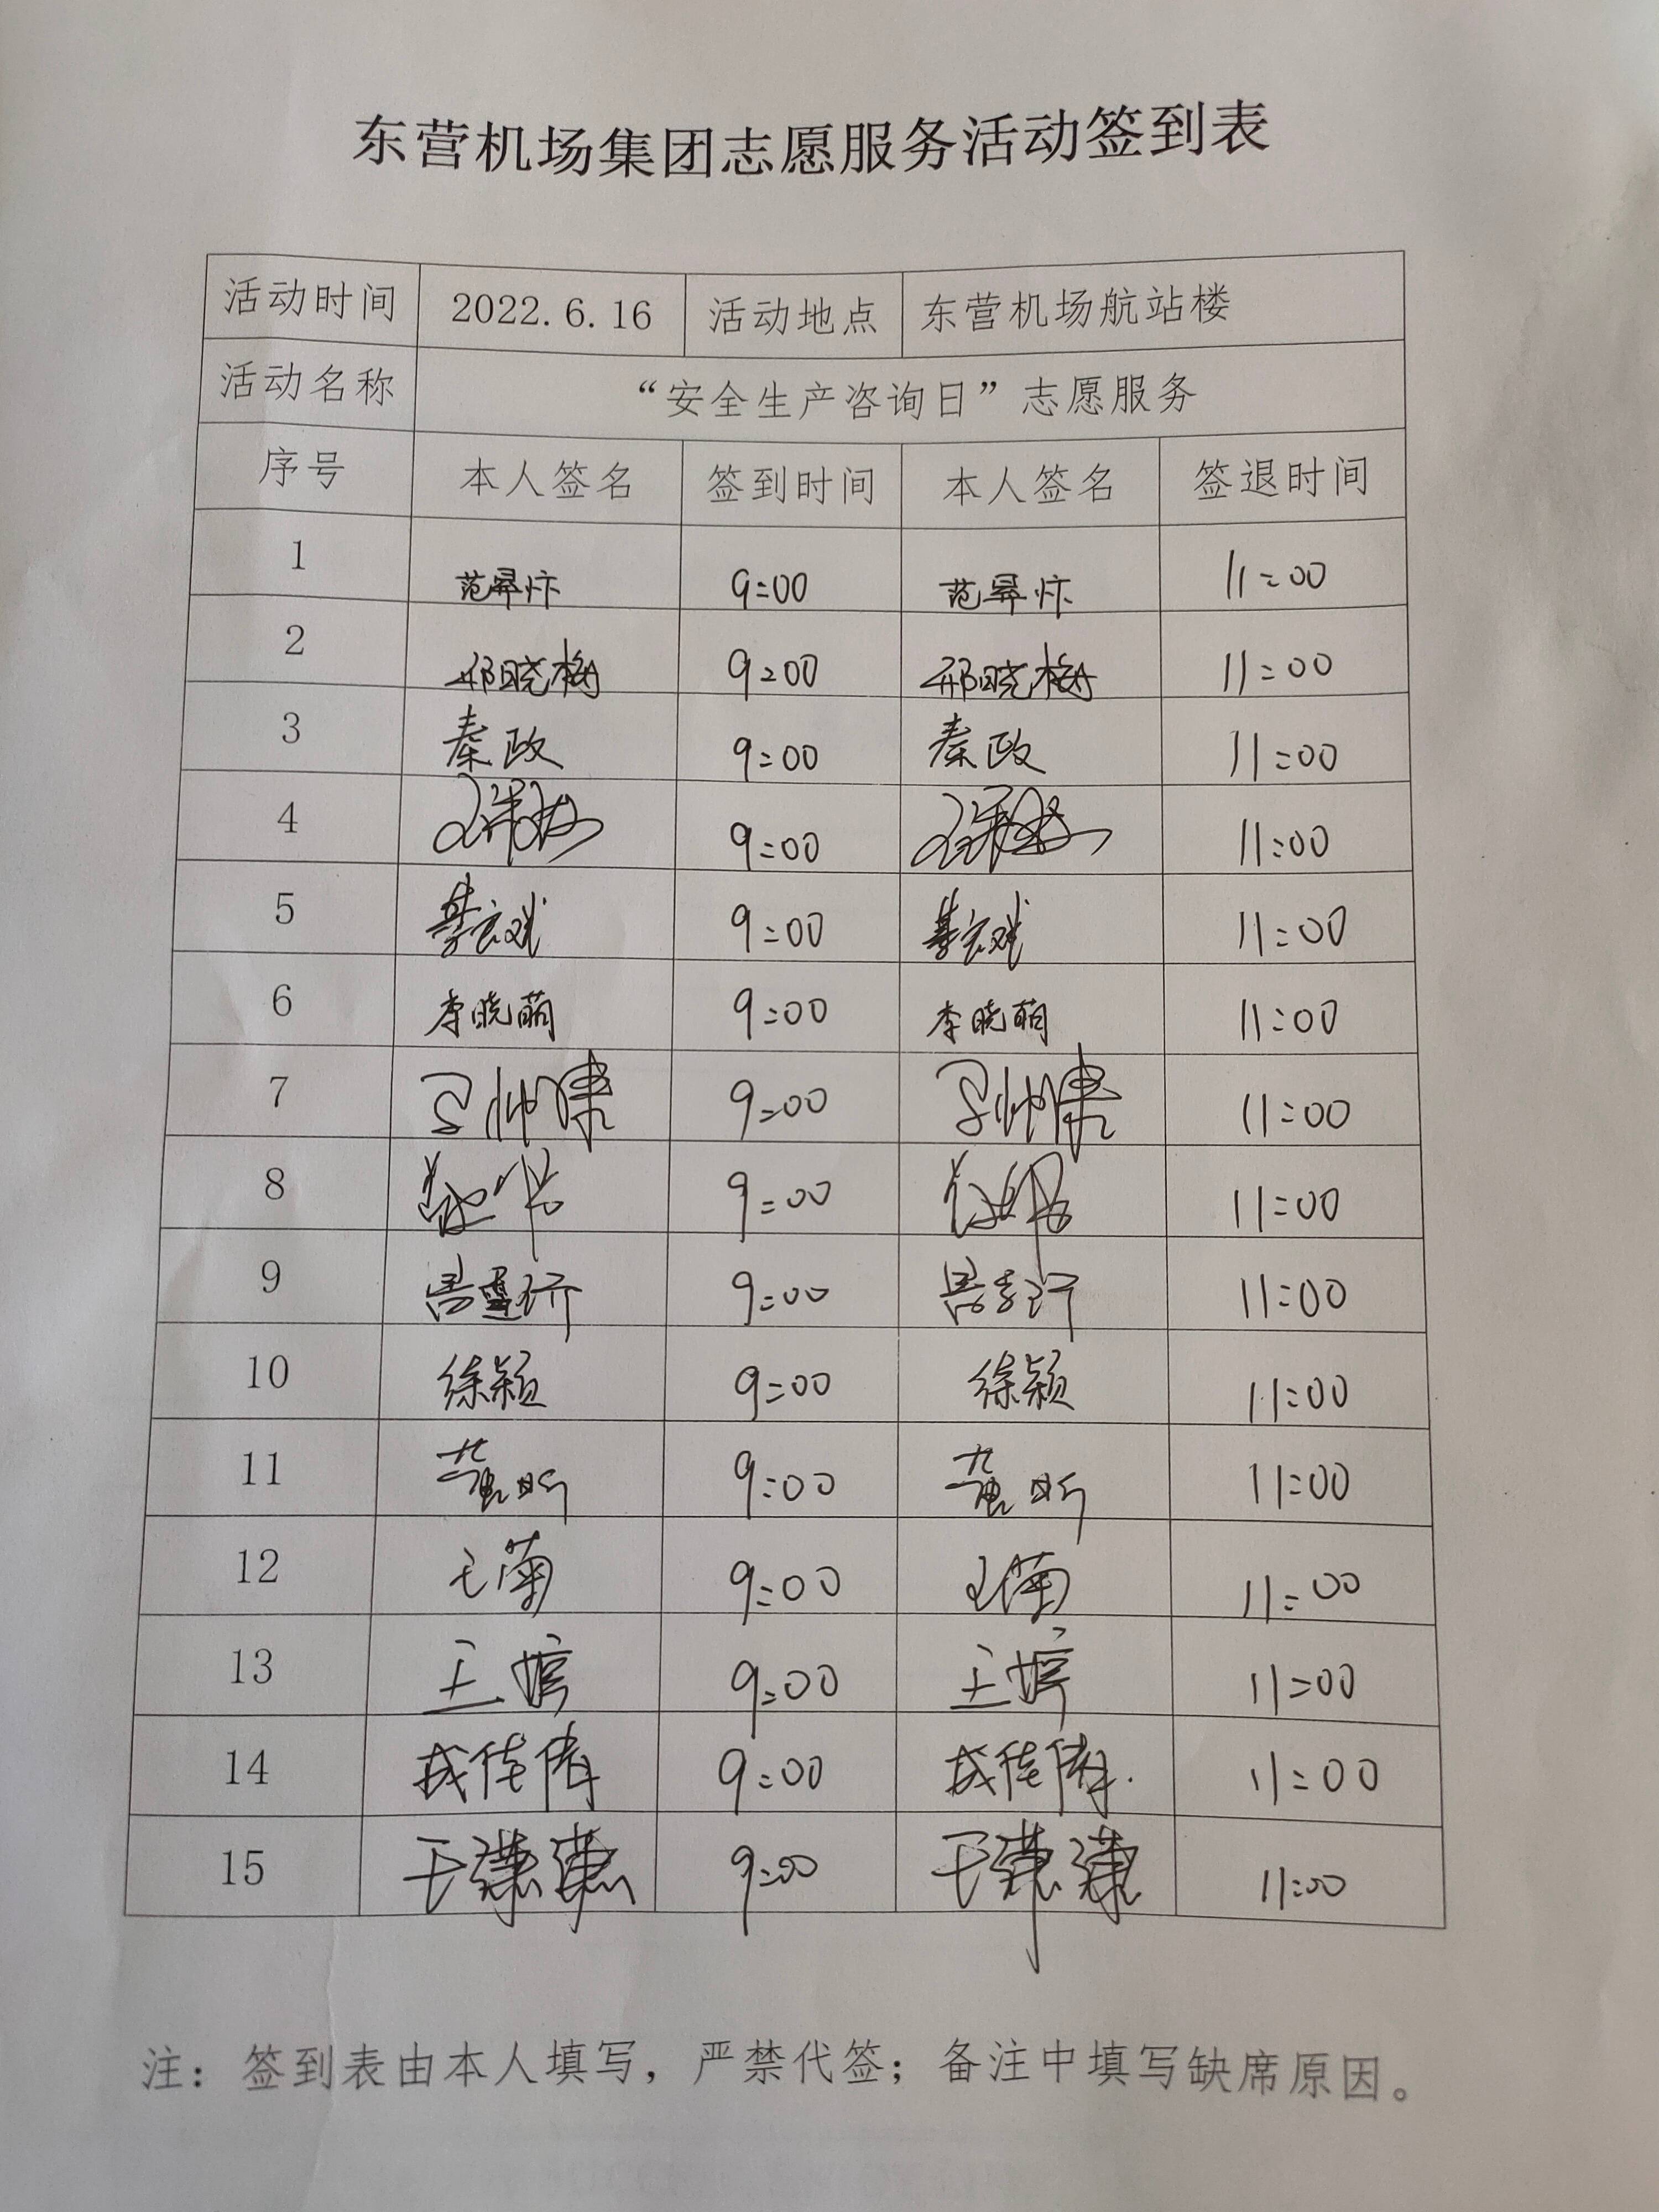 东营机场集团志愿服务活动签到表
活动时间 2022.6.16 活动地点 东营机场航站楼
活动名称 “安全生产咨询日”志愿服务
序号 本人签名 签到时间 本人签名 签退时间
1 9:00 11:00
2 邢晓梅 9:00 邢晓梅 11:00
3 秦政 9:00 秦政 11:00
4 9:00 11:00
5 9:00 11:00
6 李晓萌 9:00 李晓萌 11:00
7 9:00 11:00
8 9:00 11:00
9 9:00 11:00
10 徐颖 9:00 徐颖 11:00
11 9:00 11:00
12 9:00 11:00
13 王婷 9:00 王婷 11:00
14 成佳倩 9:00 成佳倩 11:00
15 9:00 11:00
注：签到表由本人填写，严禁代签；备注中填写缺席原因。